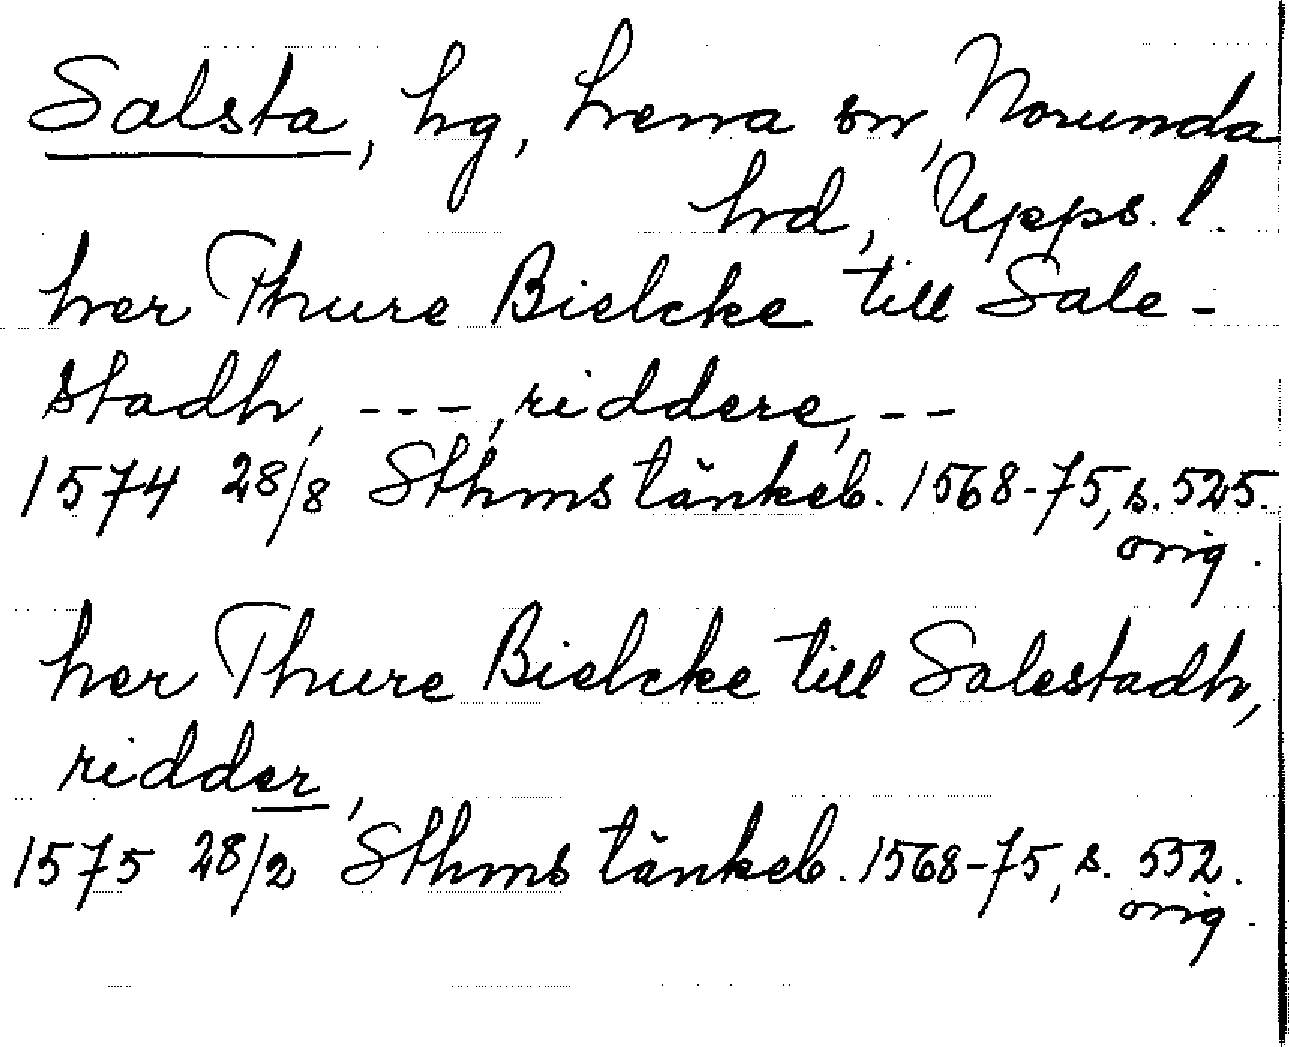 Salsta, hg, Lena sn, Norunda
hd, Upps. l.
her Thure Bielcke till Sale-
stadh, ---, riddere, --
1574 28/8 Sthms tänkeb. 1568-75, s. 525.
orig.
her Thure Bielcke till Salestadh,
ridder,
1575 28/2 Sthms tänkeb. 1568-75, s. 552.
orig.